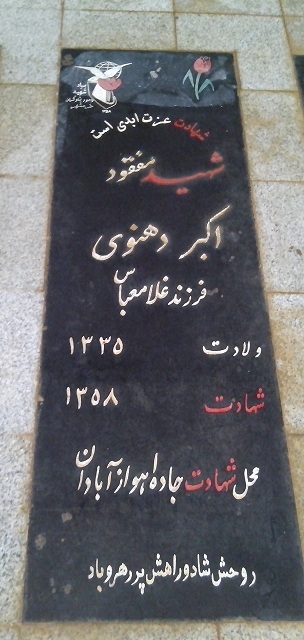 شهادت عزت ابدی است
شهید مفقود
اکبر دهنوی
فرزند غلامعباس
ولادت ۱۳۳۵
شهادت ۱۳۵۸
محل شهادت جاده اهواز آبادان
روحش شاد و راهش پر رهرو باد